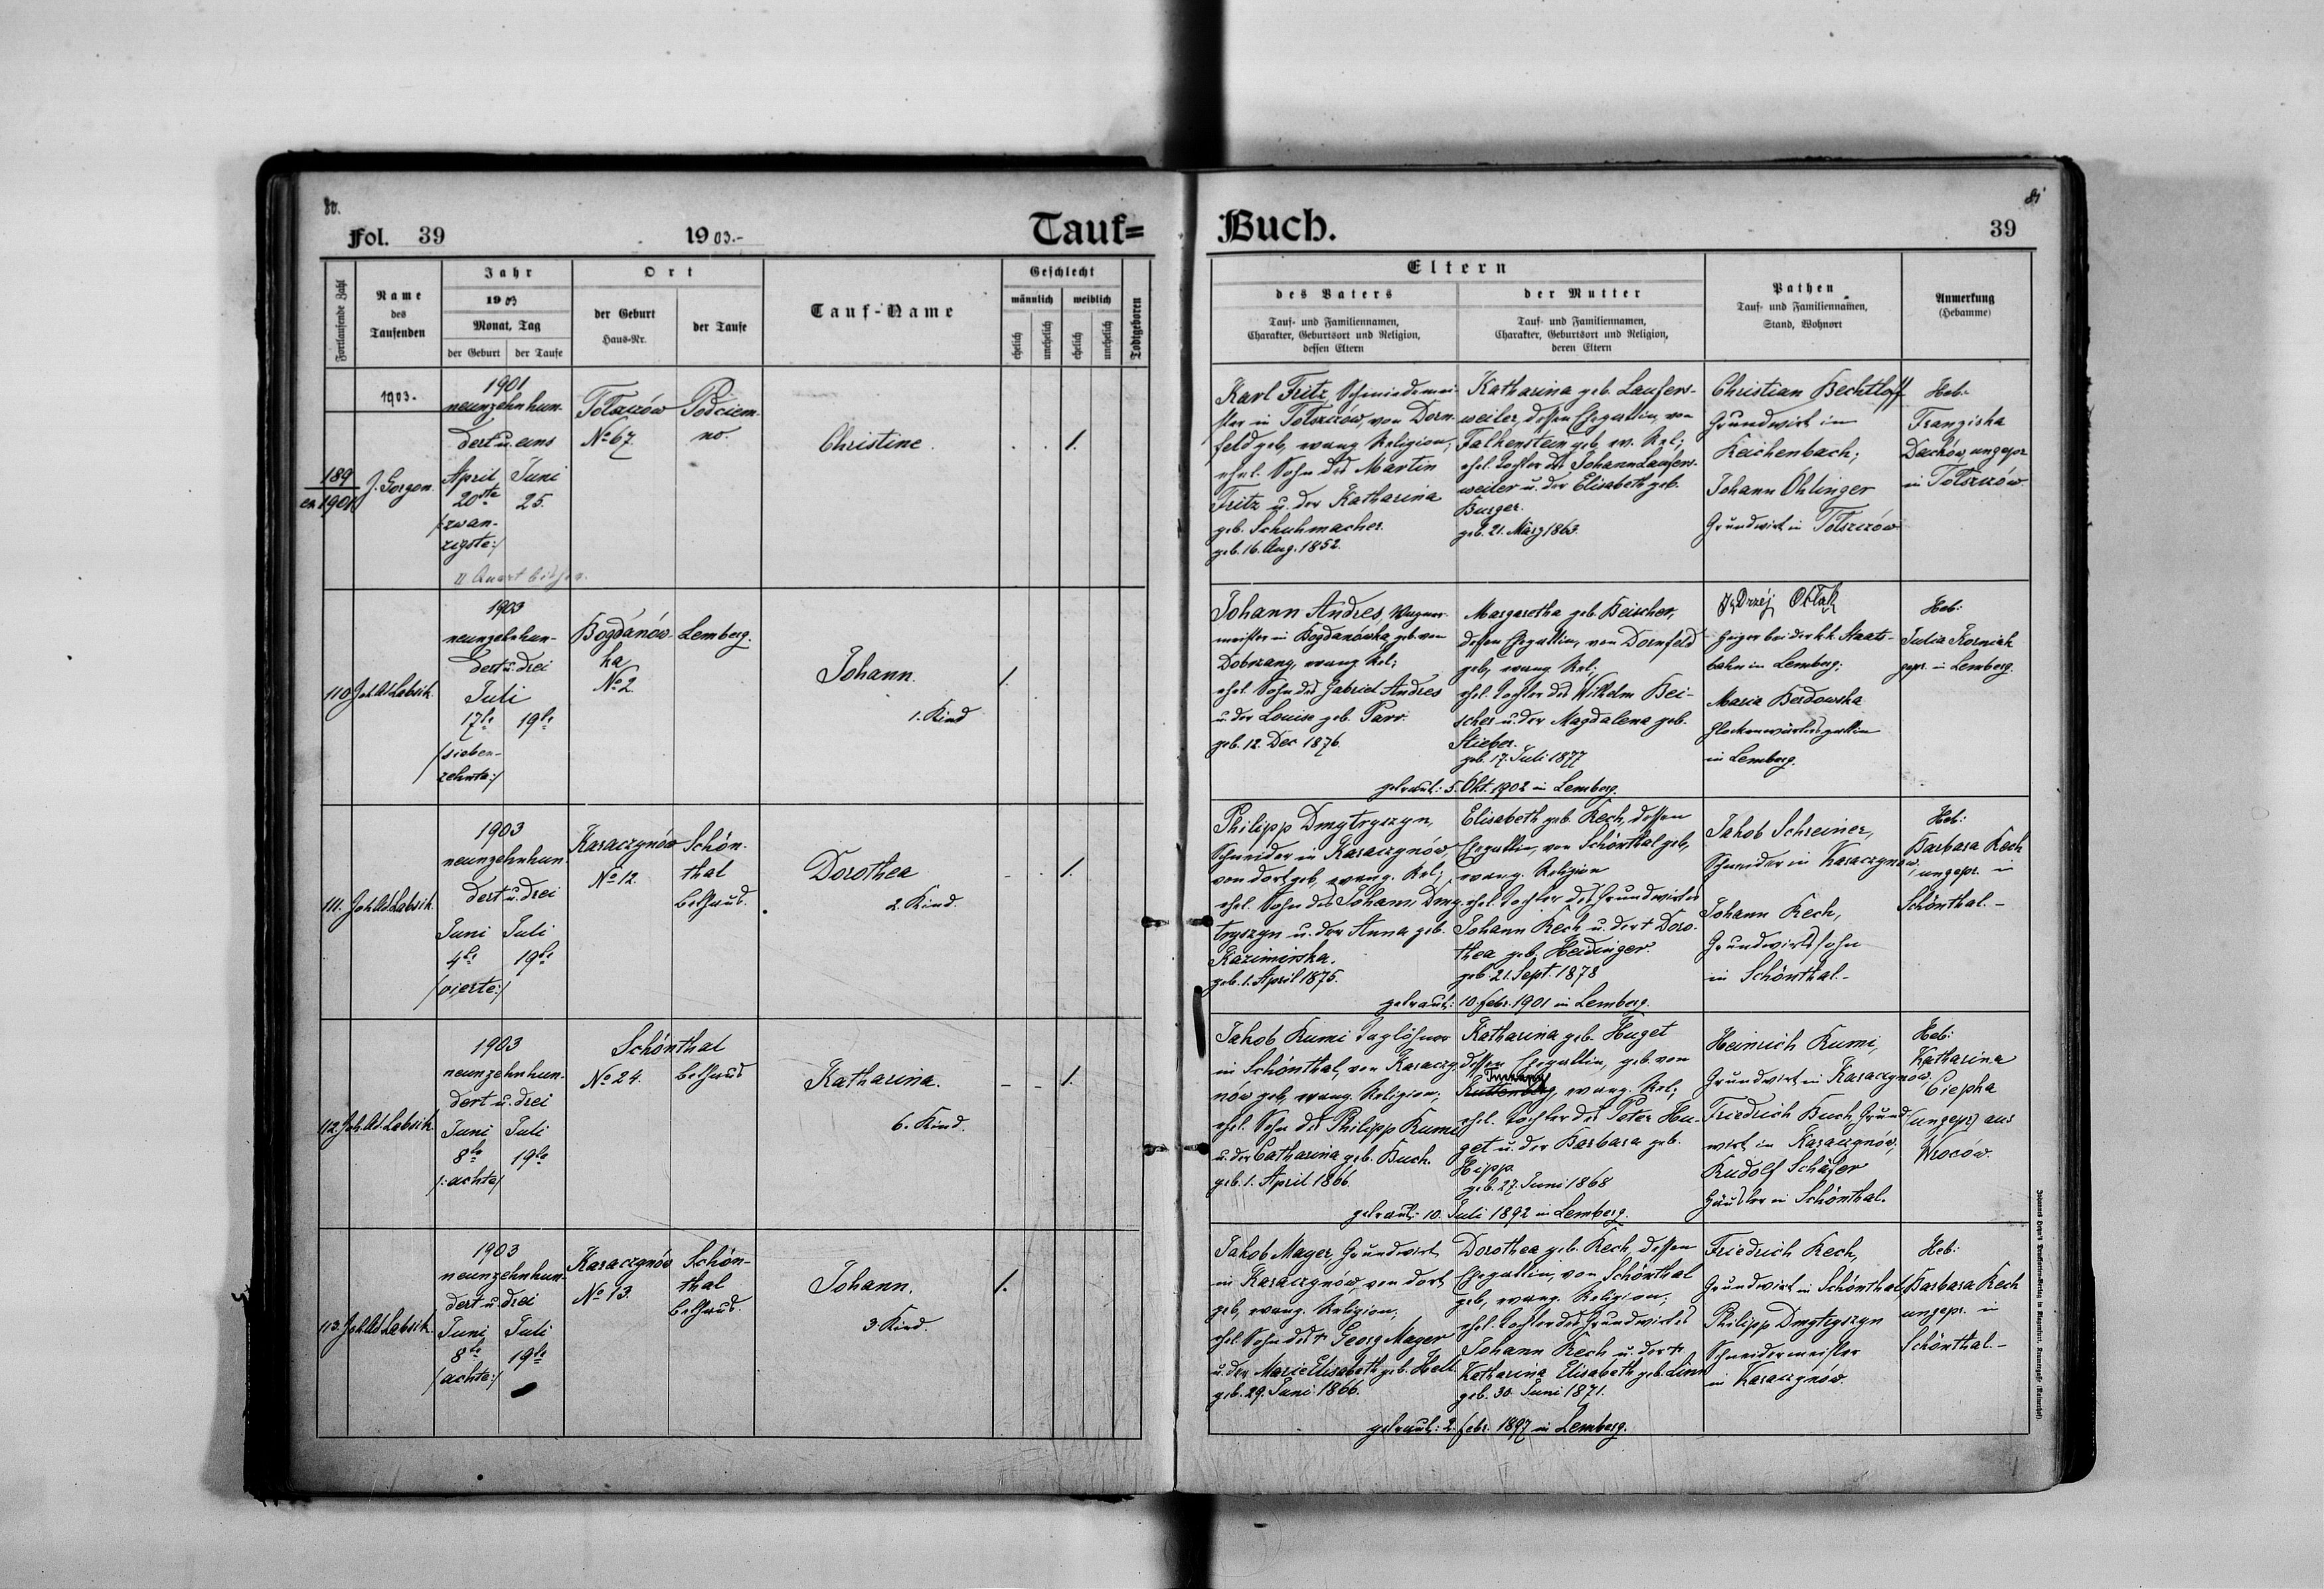 80.
Fol. 39
1903.-
Tauf=
Fortlaufende Zahl
Name
des
Taufenden
Jahr
1903
Monat, Tag
der Geburt
der Taufe
Ort
der Geburt
Haus-Nr.
der Taufe
Tauf-Name
Geschlecht
männlich
weiblich
ehelich
unehelich
ehelich
unehelich
Todtgeboren
1903.
189
ex 1901
J. Gorgon.
1901
neunzehnhun-
dert u. eins
April
20ste
/:zwan-
zigste:/
Juni
25.
Tolszczów
No 67.
Podciem-
no.
Christine.
1.
110.
Joh. Ad. Labsik.
1903
neunzehnhun-
dert u. drei
Juli
17te
19te
/:sieben-
zehnte:/
Bogdanów-
ka
No 2.
Lemberg.
Johann.
1. Kind
1.
111.
Joh. Ad. Labsik.
1903
neunzehnhun-
dert u. drei
Juni
4te
/:vierte:/
Juli
19te
Karaczynów
No 12.
Schön-
thal
Bethaus.
Dorothea
2. Kind.
1.
112.
Joh. Ad. Labsik.
1903
neunzehnhun-
dert u. drei
Juni
8te
/:achte/
Juli
19te
Schönthal
No 24.
Bethaus
Katharina.
6. Kind.
1.
113.
Joh. Ad. Labsik.
1903
neunzehnhun-
dert u. drei
Juni
8te
/:achte:/
Juli
19te
Karaczynów
No 13.
Schön-
thal
Bethaus.
Johann.
3. Kind.
1.
81
Buch.
39
Eltern
des Vaters
Tauf- und Familiennamen,
Charakter, Geburtsort und Religion,
dessen Eltern
der Mutter
Tauf- und Familiennamen,
Charakter, Geburtsort und Religion,
deren Eltern
Pathen
Tauf- und Familiennamen,
Stand, Wohnort
Anmerkung
(Hebamme)
Karl Fritz, Schmiedemei-
ster in Tolszczów, von Dorn-
feld geb, evang. Religion,
ehel. Sohn des Martin
Fritz u. der Katharina
geb. Schuhmacher.
geb. 16. Aug. 1852.
Katharina geb. Laufers-
weiler, dessen Ehegattin, von
Falkenstein geb, ev. Rel;
ehel. Tochter des Johann Laufers-
weiler u. der Elisabeth geb.
Burger.
geb. 21. März 1863.
Christian Bechtloff
Grundwirt in
Reichenbach;
Johann Ohlinger
Grundwirt in Tolszczów
Heb:
Franziska
Dachów, ungepr.
in Tolszczów
Johann Andres, Wagner-
meister in Bogdanówka, geb. von
Dobrzany, evang. Rel;
ehel. Sohn des Gabriel Andres
u. der Louise geb. Parr.
geb. 12. Dec. 1876.
Margaretha geb. Reischer,
dessen Ehegattin, von Dornfeld
geb, evang. Rel;
ehel. Tochter des Wilhelm Rei-
scher u. der Magdalena geb.
Stieber.
geb. 17. Juli 1877
getraut: 5. Okt. 1902 in Lemberg.
Heizer bei der k.k. Staats-
bahn in Lemberg;
Maria Berdowska
Glockenwärtersgattin
in Lemberg.
Heb:
Julia Korniak
gepr. in Lemberg.
Philipp Dmytryszyn,
Schneider in Karaczynów,
von dort geb, evang. Rel;
ehel. Sohn des Johann Dmy-
tryszyn u. der Anna geb.
Kazimirska.
geb. 1. April 1875.
Elisabeth geb. Rech, dessen
Ehegattin, von Schönthal geb,
evang. Religion
ehel. Tochter des Grundwirtes
Johann Rech u. der † Doro-
thea geb. Heidinger.
geb. 21. Sept. 1878
getraut: 10. Febr. 1901 in Lemberg.
Jakob Schreiner,
Schneider in Karaczynów,
Johann Rech,
Grundwirtssohn
in Schönthal.-
Heb:
Barbara Rech
ungepr. in
Schönthal.-
Jakob Kumi Taglöhner
in Schönthal, von Karaczy-
nów geb, evang. Religion;
ehel. Sohn des Philipp Kumi
u. der Catharina geb. Buch.
geb. 1. April 1866
Katharina geb. Huget
dessen Ehegattin, geb. von
evang. Rel;
ehel. Tochter des Peter Hu-
get u. der Barbara geb.
Hipp
geb. 27. Juni 1868
getraut: 10. Juli 1892 in Lemberg.
Heinrich Kumi,
Grundwirt in Karaczynów,
Friedrich Buch, Grund-
wirt in Karaczynów,
Rudolf Schäfer
Häusler in Schönthal.
Heb:
Katharina
Ciepka
(ungepr) aus
Wroców.
Jakob Mayer, Grundwirt
in Karaczynów, von dort
geb, evang. Religion;
ehel. Sohn des † Georg Mayer
u. der Marie Elisabeth geb. Hell
geb. 29. Juni 1866.
Dorothea geb. Rech, dessen
Ehegattin, von Schönthal
geb, evang. Religion;
ehel. Tochter des Grundwirtes
Johann Rech u. der †
Katharina Elisabeth geb. Linn
geb. 30. Juni 1871.
getraut: 2. Febr. 1897 in Lemberg.
Friedrich Rech,
Grundwirt in Schönthal,
Philipp Dmytryszyn
Schneidermeister
in Karaczynów.
Heb:
Barbara Rech
ungepr. in
Schönthal.-